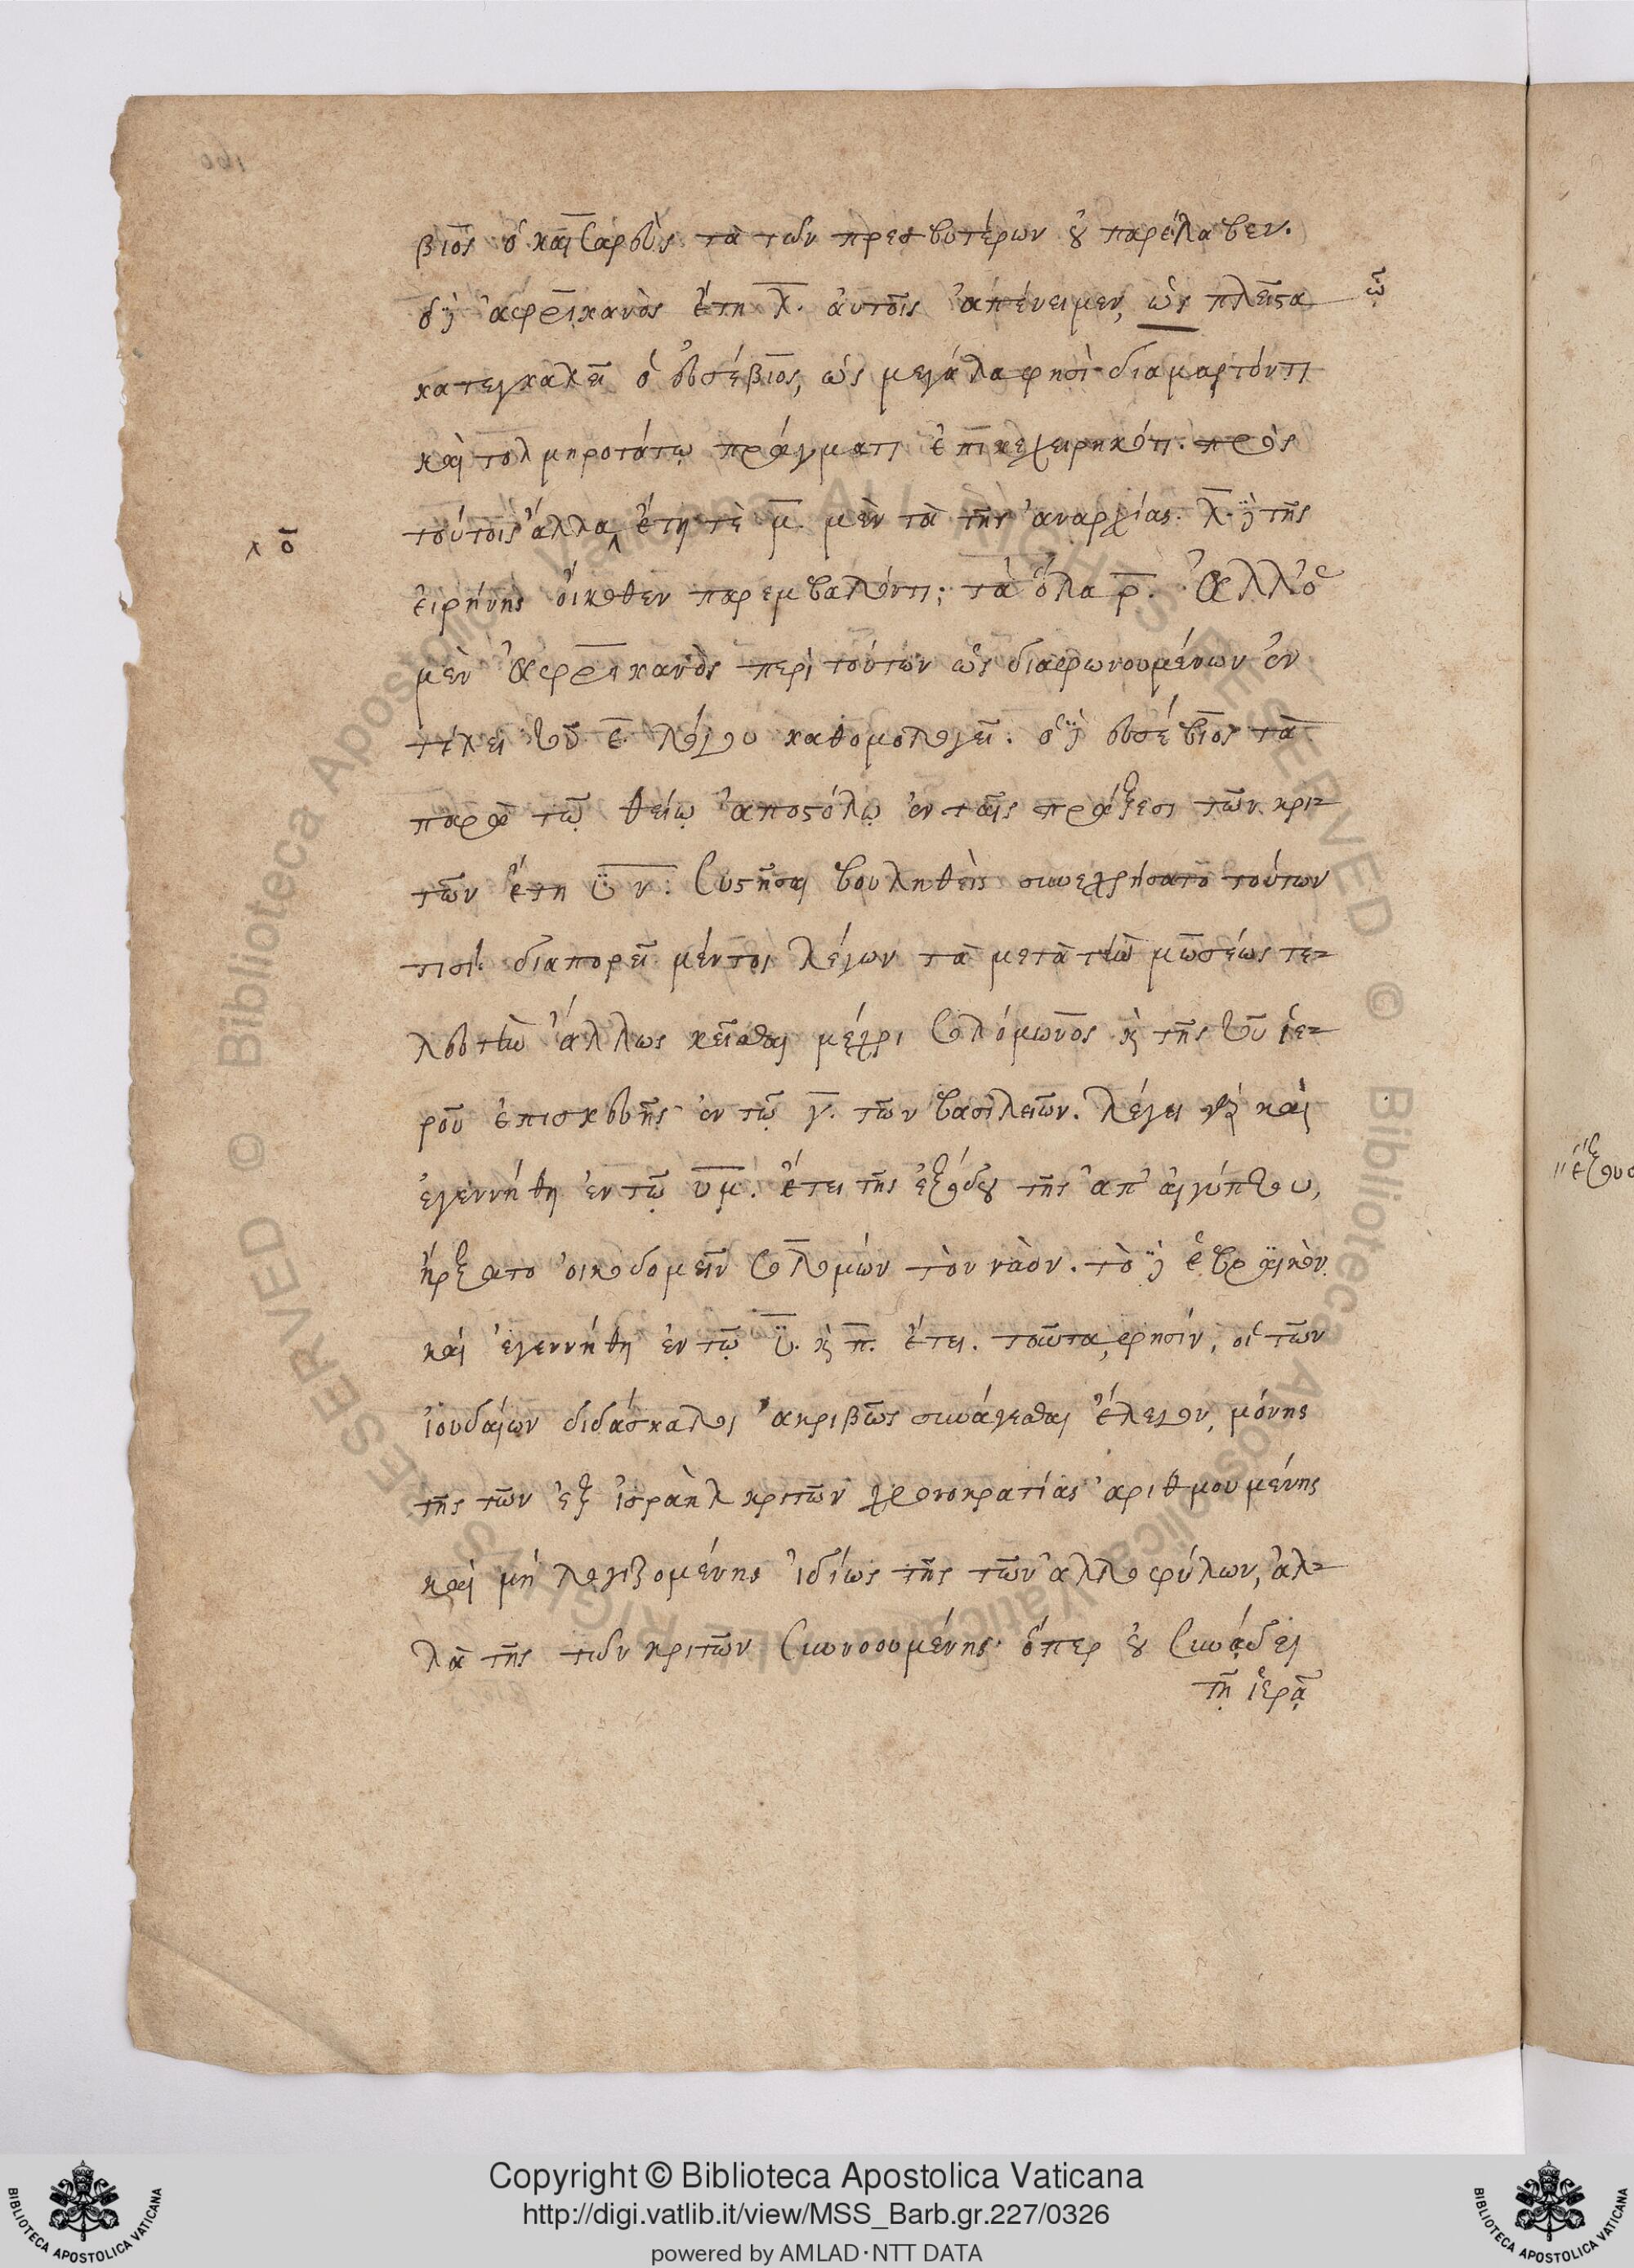 βιος ὁ καίσαρεὺς τὰ τῶν πρεσβυτέρων οὐ παρέλαβεν.
ὁ δὲ ἀφρικανὸς ἔτη λ. αὐτοῖς ἀπένειμεν, ὡς πλεῖστα
ᾧ
κατεγκαλεῖ ὁ εὐσέβιος, ὡς μεγάλα φησὶ διαμαρτόντι
καὶ τολμηροτάτῳ πράγματι ἐπικεχειρηκότι· πρὸς
τούτοις ἄλλα ἔτη τὲ μ. μὲν τὰ τῆς ἀναρχίας. λ. δὲ τῆς
ο
εἰρήνης οἴκοθεν παρεμβαλόντι· τὰ ὅλα ρ. Ἀλλ' ὁ
μὲν Ἀφρικανὸς περὶ τούτων ὡς διαφωνουμένων ἐν
τέλει τοῦ ε λόγου καθομολογεῖ. ὁ δὲ εὐσέβιος τὰ
παρὰ τῷ θείῳ ἀποστόλῳ ἐν ταῖς πράξεσι τῶν κρι-
τῶν ἔτη υν. συστῆσαι βουληθεὶς συνεχρήσατο τούτων
τισί· διαπορεῖ μέντοι λέγων τὰ μετὰ τὴν μωσέως τε-
λευτὴν ἄλλως κεῖσθαι μέχρι σολόμωνος καὶ τῆς τοῦ ἱε-
ροῦ ἐπισκευῆς ἐν τῷ γ. τῶν βασιλειῶν. λέγει γὰρ καὶ
ἐγεννήθη ἐν τῷ υμ. ἔτει τῆς ἐξόδου τῆς ἀπ' αἰγύπτου,
ἤρξατο οἰκοδομεῖν σολομών τὸν ναὸν. τὸ δὲ ἑβραϊκὸν
καὶ ἐγεννήθη ἐν τῷ υ. καὶ π. ἔτει. ταῦτα, φησίν, οἱ τῶν
ἰουδαίων διδάσκαλοι ἀκριβῶς συνάγεσθαι ἔλεγον, μόνης
τῆς τῶν ἐξ ἰσραὴλ κριτῶν χρονοκρατίας ἀριθμουμένης
καὶ μὴ λογιζομένης ἰδίως τῆς τῶν ἀλλοφύλων, ἀλ-
λὰ τῆς τῶν κριτῶν συννοουμένης· ὅπερ οὐ συνᾴδει
τῇ ἱερᾷ
Copyright © Biblioteca Apostolica Vaticana
http://digi.vatlib.it/view/MSS_Barb.gr.227/0326
powered by AMLAD·NTT DATA